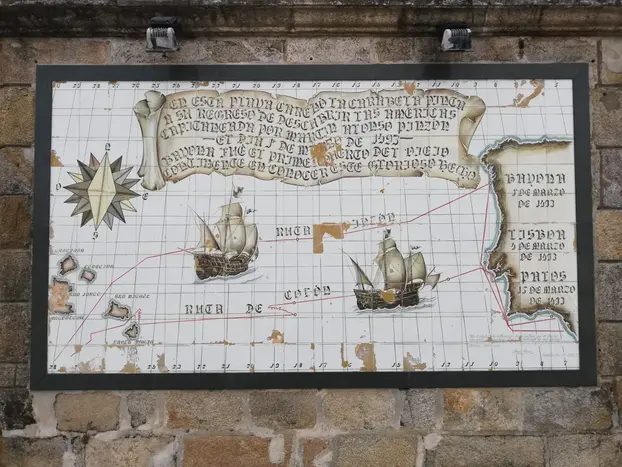 EN ESTA PLAYA CARENO LA CARABELA PINTA
A SU REGRESO DE DESCUBRIR LAS AMERICAS
CAPITANEADA POR MARTIN ALONSO PINZON
EL DIA 1 DE DE 1493
BAYONA FUE EL PRIMER PUERTO DEL VIEJO
CONTINENTE EN CONOCER ESTE GLORIOSO HECHO
BAYONA
1 DE MARZO
DE 1493
LISBOA
4 DE MARZO
DE 1493
PALOS
15 DE MARZO
DE 1493
RUTA PINZON
RUTA DE COLON
O
E
S
SAN JORGE
SAN MIGUEL
SANTA MARIA